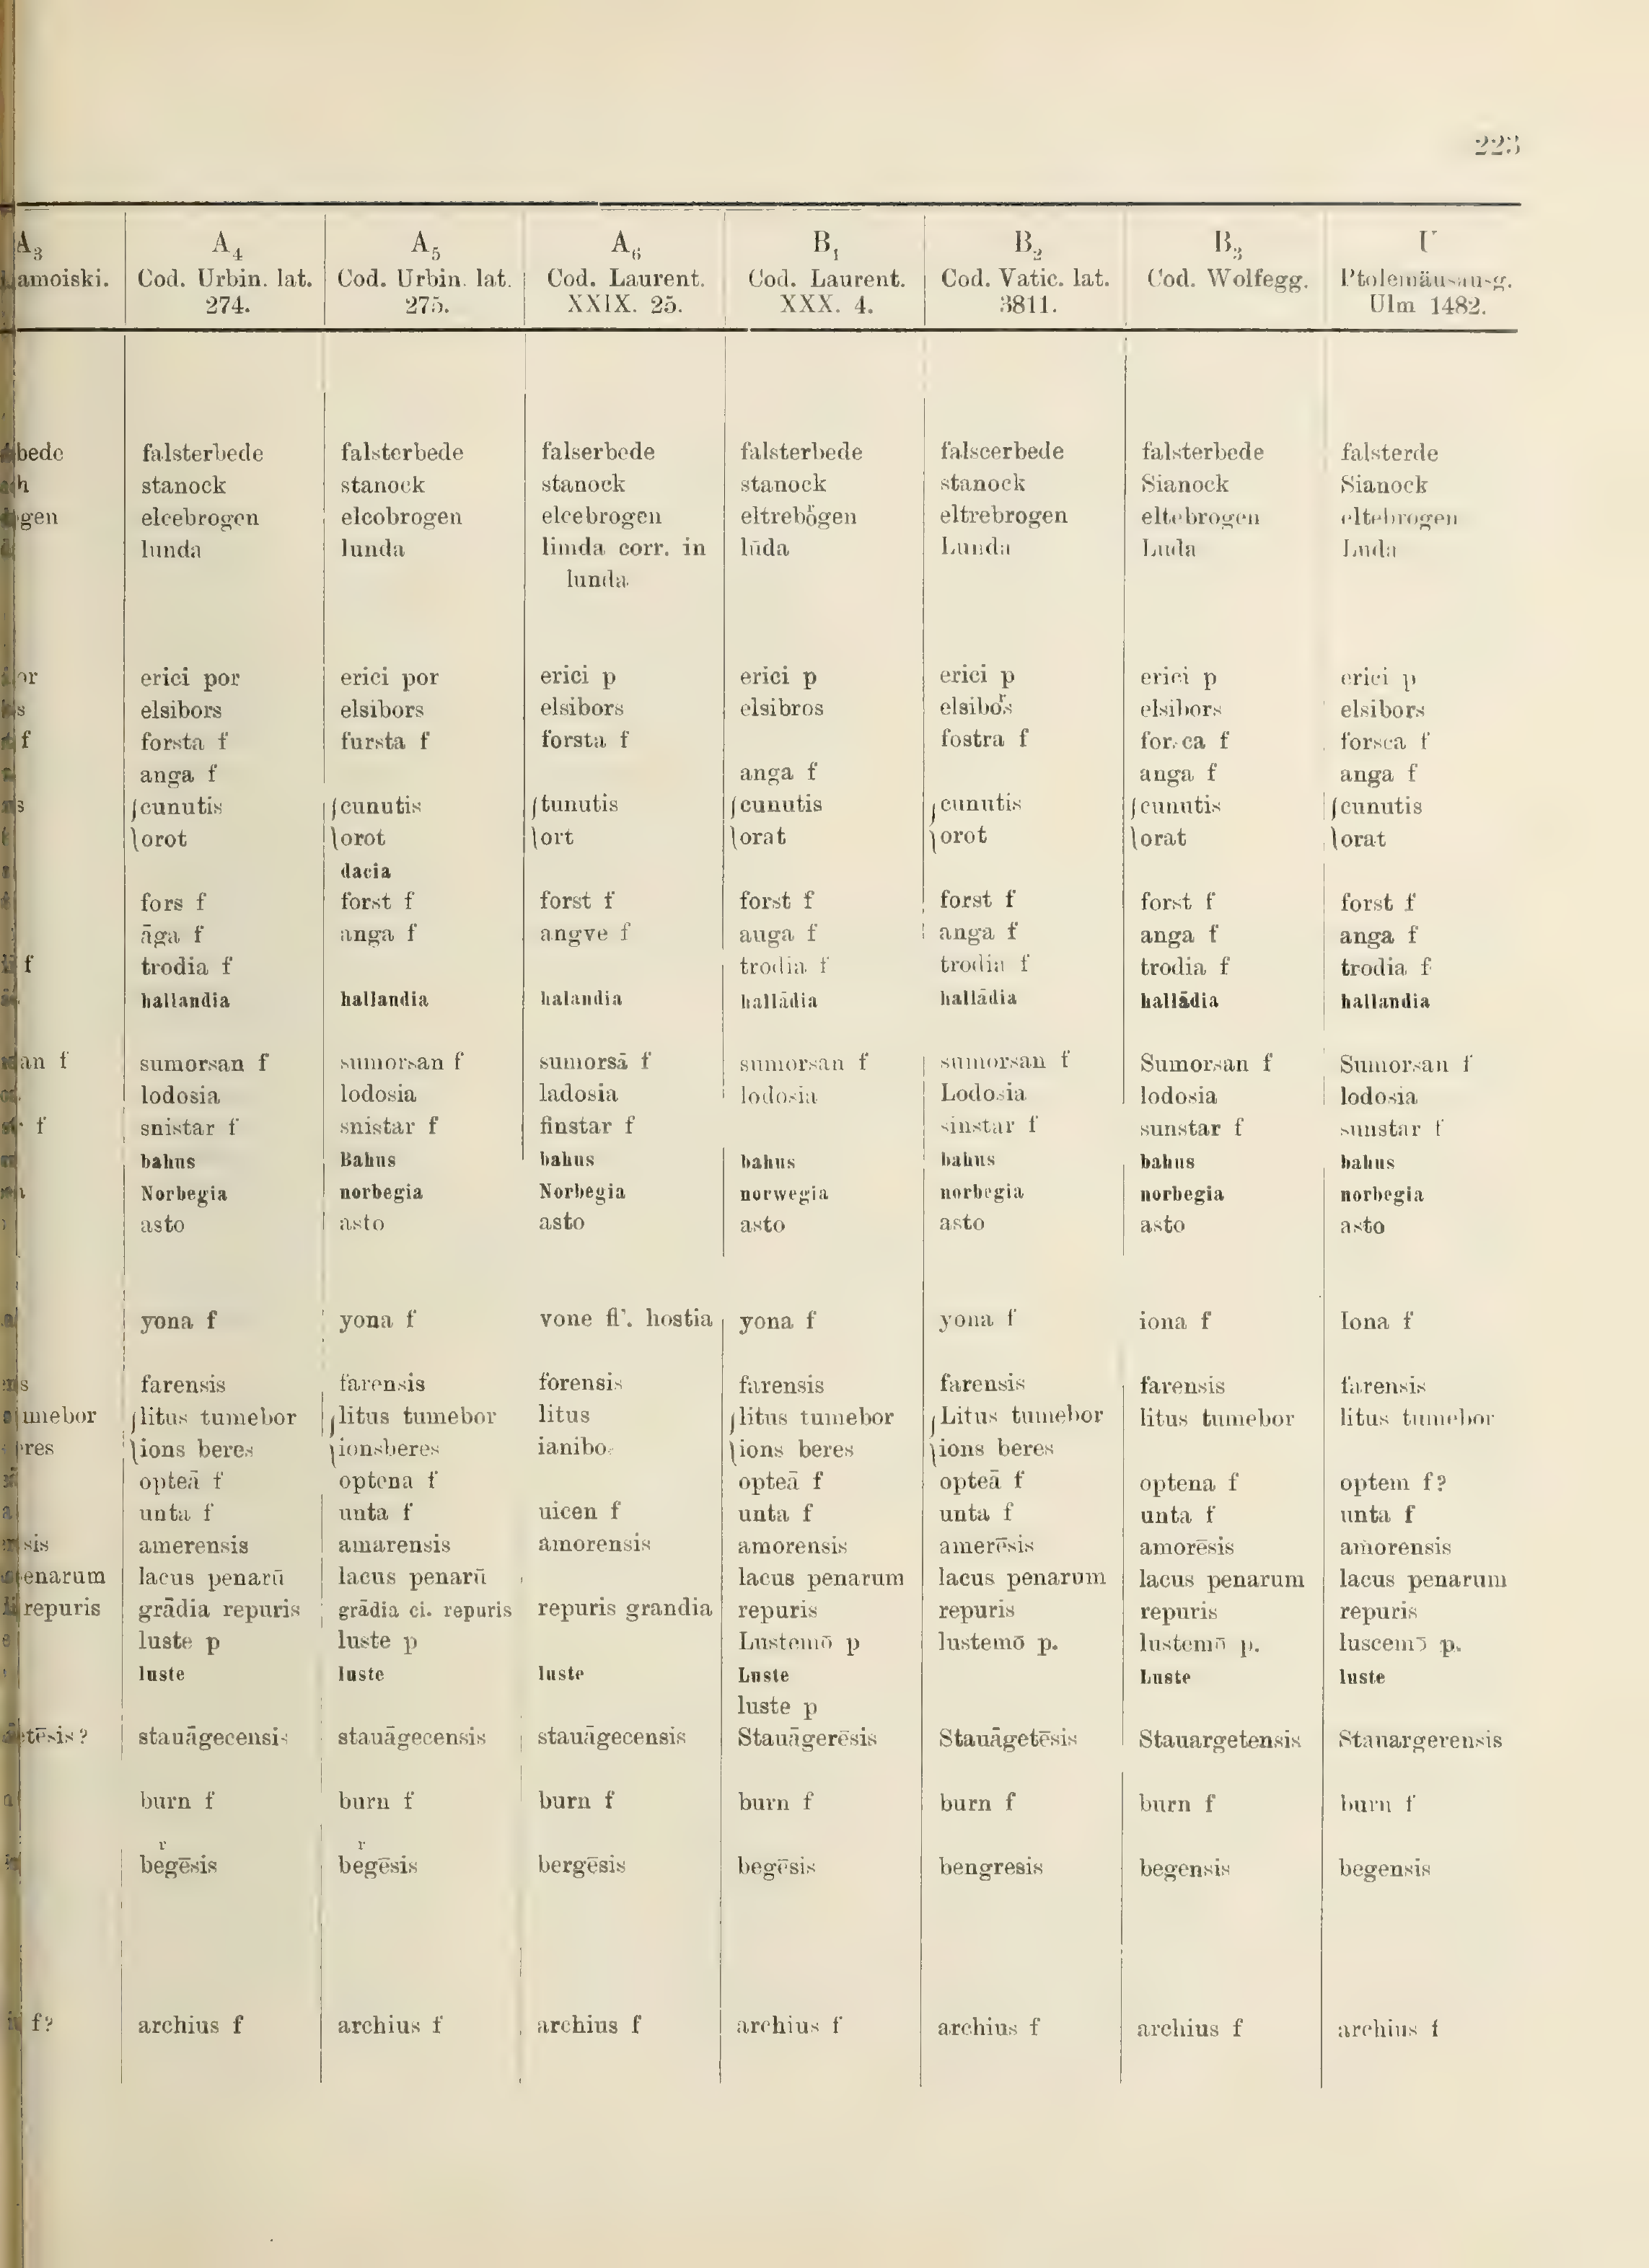 223
A₃ A₄ A₅ A₆ B₁ B₂ B₃ U
amoiski. Cod. Urbin. lat. Cod. Urbin. lat. Cod. Laurent. Cod. Laurent. Cod. Vatic. lat. Cod. Wolfegg. Ptolemäusausg.
274. 275. XXIX. 25. XXX. 4. 3811. Ulm 1482.
bede falsterbede falsterbede falserbede falsterbede falscerbede falsterbede falsterde
stanock stanock stanock stanock stanock Sianock Sianock
gen elcebrogen elcobrogen elcebrogen eltrebögen eltrebrogen eltebrogen eltebrogen
lunda lunda limda corr. in lūda Lunda Luda Luda
lunda
or erici por erici por erici p erici p erici p erici p erici p
s elsibors elsibors elsibors elsibros elsiboʳs elsibors elsibors
f forsta f fursta f forsta f fostra f forsca f forsca f
anga f anga f anga f anga f
s cunutis cunutis tunutis cunutis cunutis cunutis cunutis
orot orot ort orat orot orat orat
dacia
fors f forst f forst f forst f forst f forst f forst f
āga f anga f angve f auga f anga f anga f anga f
f trodia f trodia f trodia f trodia f trodia f
hallandia hallandia halandia hallādia hallādia hallādia hallandia
an f sumorsan f sumorsan f sumorsā f sumorsan f sumorsan f Sumorsan f Sumorsan f
lodosia lodosia ladosia lodosia Lodosia lodosia lodosia
f snistar f snistar f finstar f sinstar f sunstar f sunstar f
bahus Bahus bahus bahus bahus bahus bahus
Norbegia norbegia Norbegia norwegia norbegia norbegia norbegia
asto asto asto asto asto asto asto
yona f yona f vone fl'. hostia yona f yona f iona f Iona f
s farensis farensis forensis farensis farensis farensis farensis
umebor litus tumebor litus tumebor litus litus tumebor Litus tumebor litus tumebor litus tumebor
res ions beres ionsberes ianibo. ions beres ions beres
opteā f optena f opteā f opteā f optena f optem f?
unta f unta f uicen f unta f unta f unta f unta f
sis amerensis amarensis amorensis amorensis amerēsis amorēsis amorensis
enarum lacus penarū lacus penarū lacus penarum lacus penarum lacus penarum lacus penarum
repuris grādia repuris grādia ci. repuris repuris grandia repuris repuris repuris repuris
luste p luste p Lustemō p lustemō p. lustemō p. luscemō p.
luste luste luste Luste Luste luste
luste p
tēsis? stauāgecensis stauāgecensis stauāgecensis Stauāgerēsis Stauāgetēsis Stauargetensis Stauargerensis
burn f burn f burn f burn f burn f burn f burn f
r r
begēsis begēsis bergēsis begēsis bengresis begensis begensis
f? archius f archius f archius f archius f archius f archius f archius f